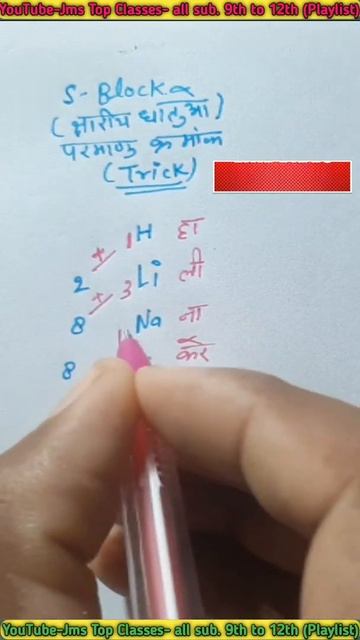 YouTube-Jms Top Classes- all sub. 9th to 12th (Playlist)
S-Block
(क्षारीय धातुओं)
परमाणु क्रमांक
(Trick)
+ 1 H हा
2 + 3 Li ली
8 11 Na ना
8 कर
YouTube-Jms Top Classes- all sub. 9th to 12th (Playlist)